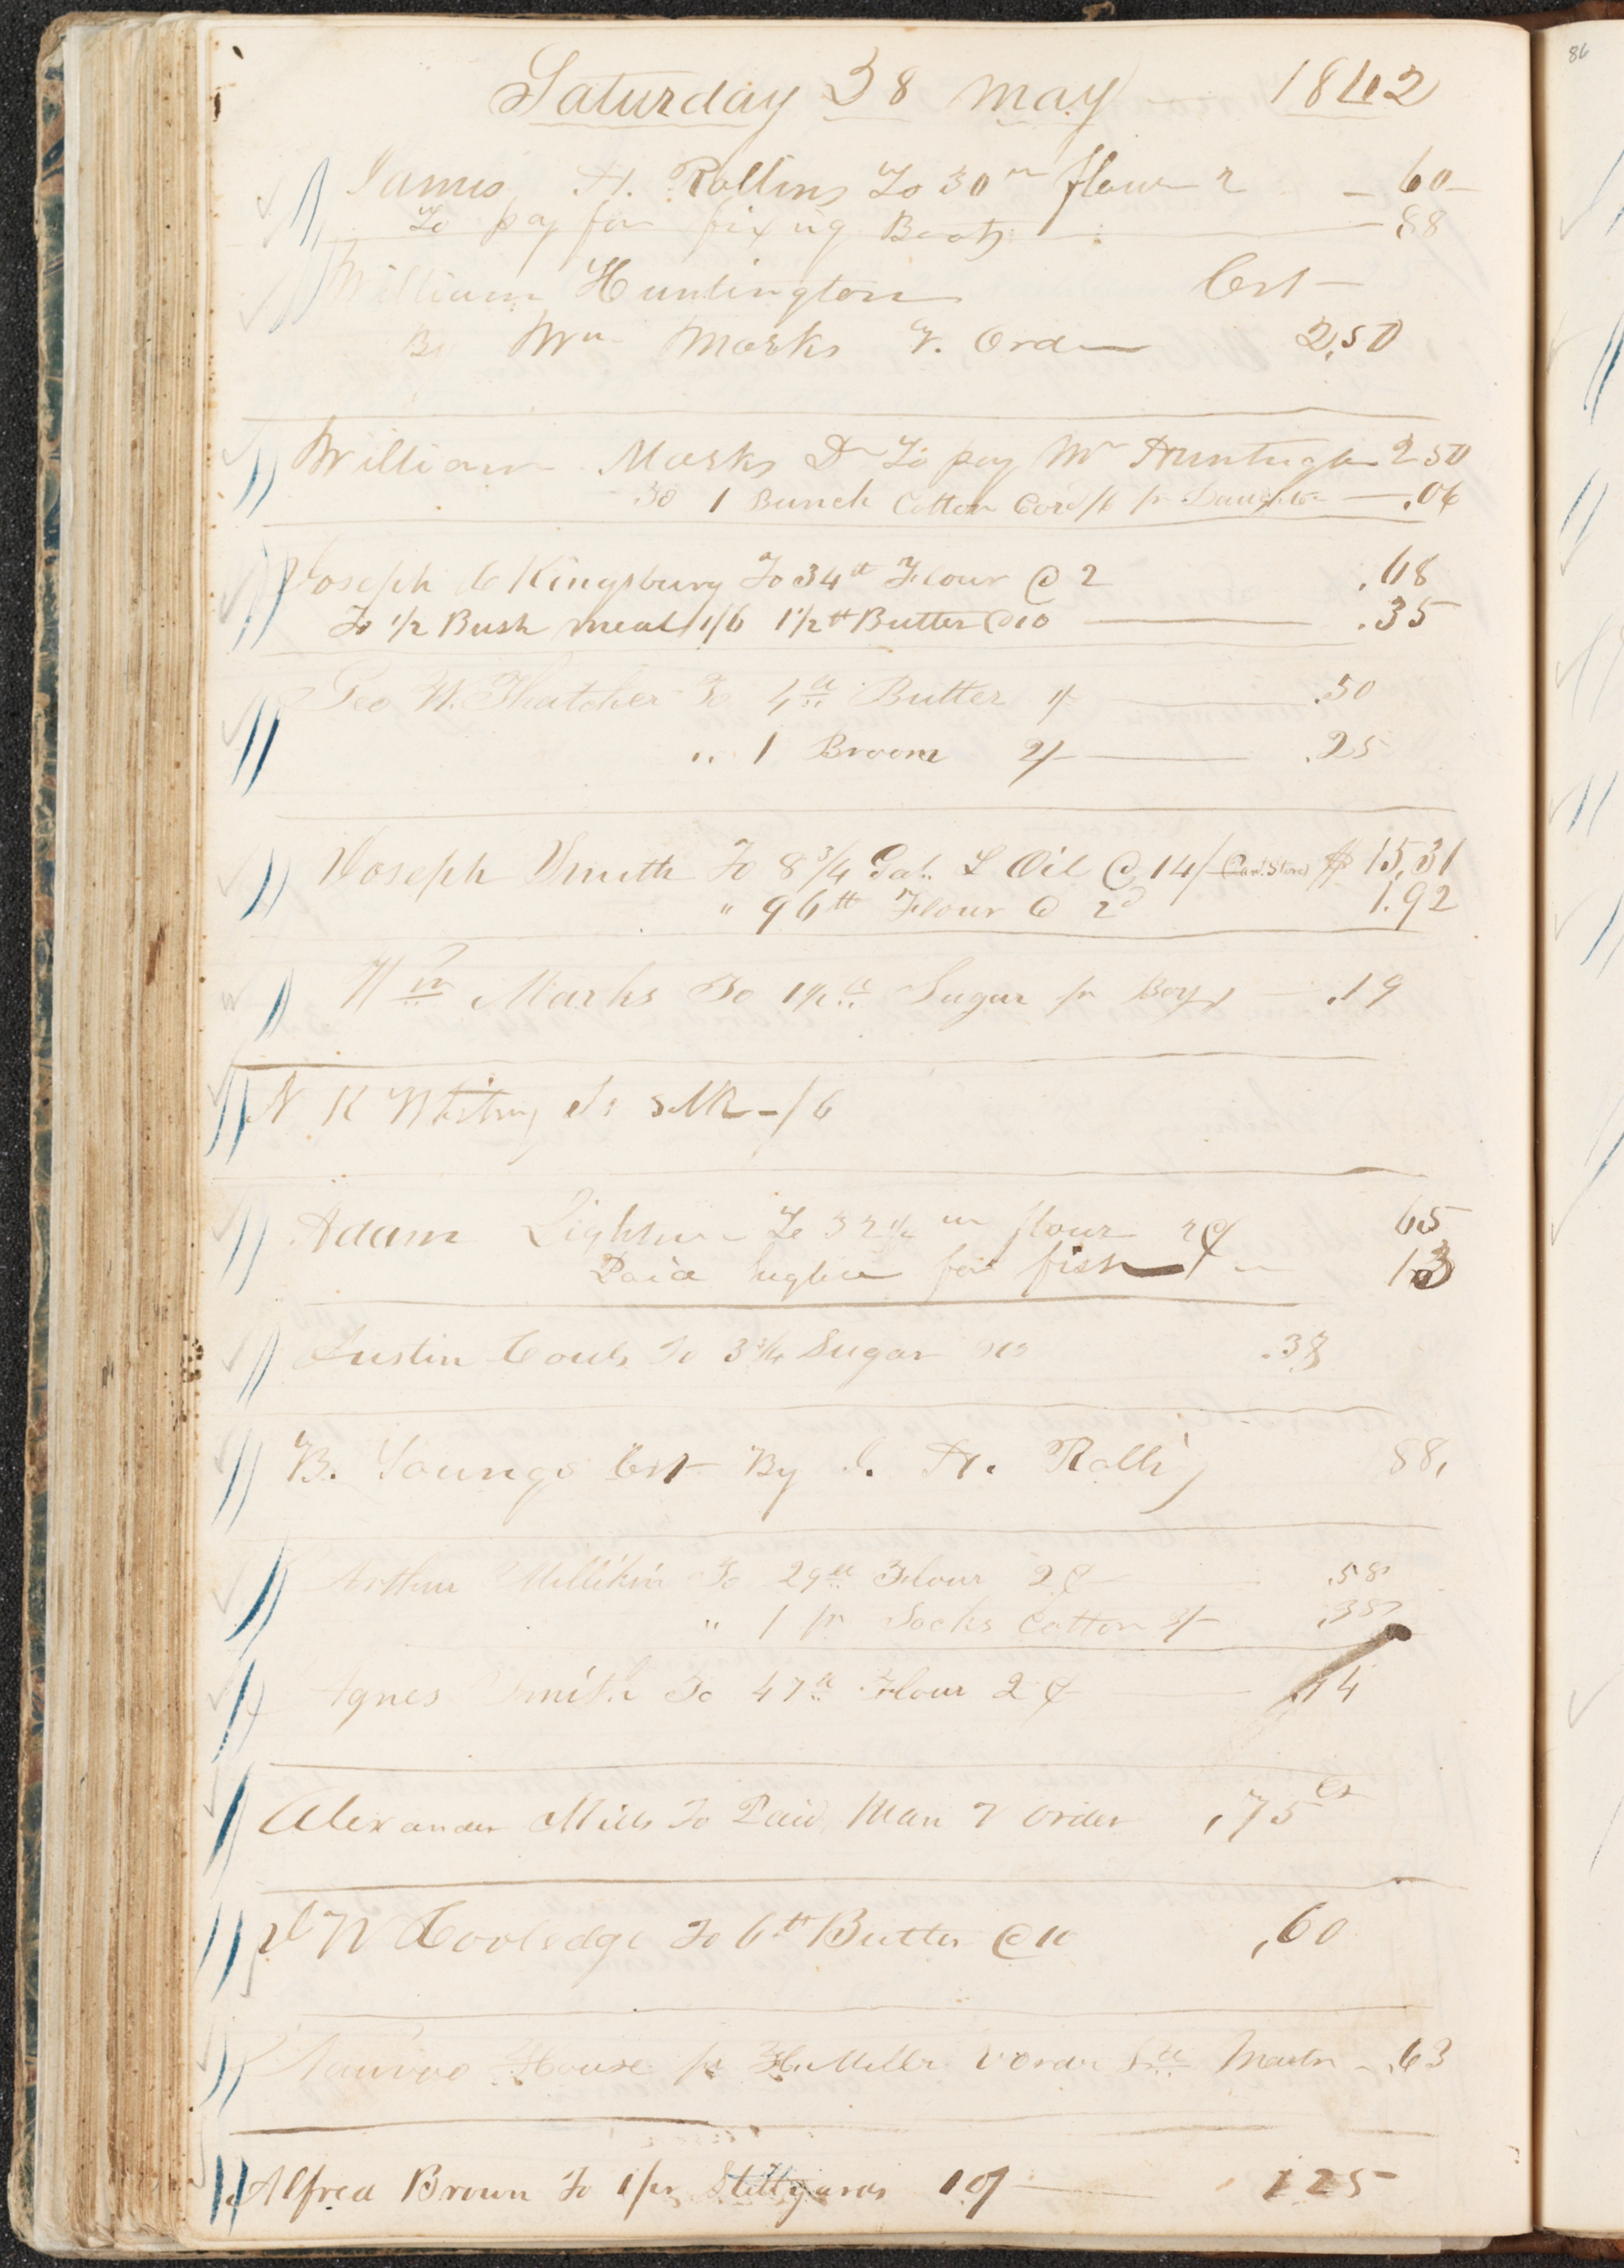 Saturday 28 May 1842
James H. Rollins To 30 lb flour 2 — 60
To pay for fixing Boots — .88
William Huntington Cr
By Wm Marks V. Order 2,50
William Marks Dr To pay Wm Huntington 2 50
To 1 Bunch Cotton Cord /6 pr Daughter — .06
Joseph C Kingsbury To 34 lb Flour @ 2 .68
To 1/2 Bush meal 1/6 1 1/2 lb Butter @ 10 — .35
Geo W. Thatcher To 4 lb Butter 1/ — .50
" 1 Broom 2/ — .25
Joseph Smith To 8 3/4 Gal. L Oil @ 14/ $ 15,31
" 96 lb Flour @ 2d 1.92
Wm Marks To 1 1/2 lb Sugar pr Boy — .19
N K Whitney To silk -/6
Adam Lightner To 32 1/2 lb flour 2¢ 65
Paid for fish 13
Austin Cowls To 3 3/4 Sugar .38
B. Young Cr By J. H. Rollins 88,
Arthur Millikin To 29 lb Flour 2¢ — .58
" 1 pr Socks Cotton 3/ — .38
Agnes Smith To 47 lb Flour 2¢ — .94
Alexander Mills To Paid Man V order ,75 cs
J W Coolidge To 6 lb Butter @ 10 ,60
Nauvoo House pr H. Miller V Order — .63
Alfred Brown To 1 pr Stillyards 10/ — 1 25
86